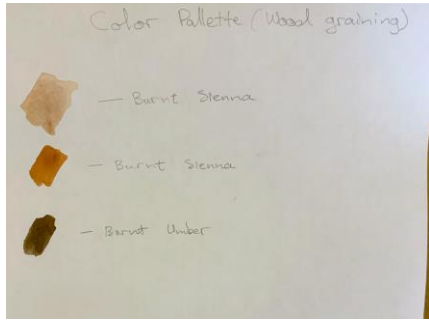 Color Pallette (Wood graining)
— Burnt Sienna
— Burnt Sienna
— Burnt Umber